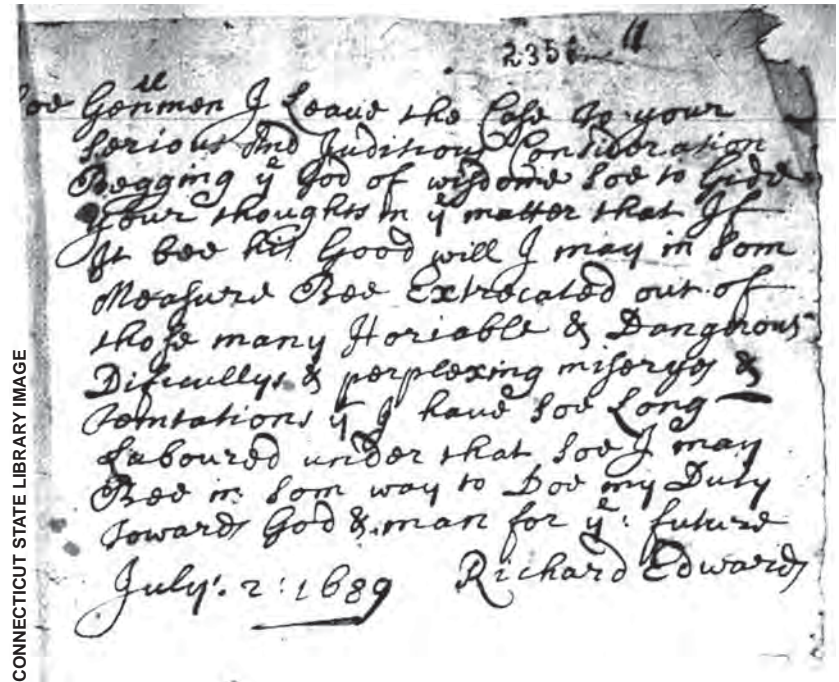 235
Soe Genllmen I Leave the Case to your
Serious And Juditious Consideration
Begging ye God of wisdome Soe to Gide
your thoughts in ye matter that If
It bee his Good will I may in Som
Measure Bee Extrecated out of
those many Horiable & Dangerous
Dificultys & perplexing miserys &
Temtations yt I have Soe Long
Laboured under that Soe I may
Bee in Som way to Doe my Duty
towards God & man for ye: future
July: 2: 1689 Richard Edwards
CONNECTICUT STATE LIBRARY IMAGE